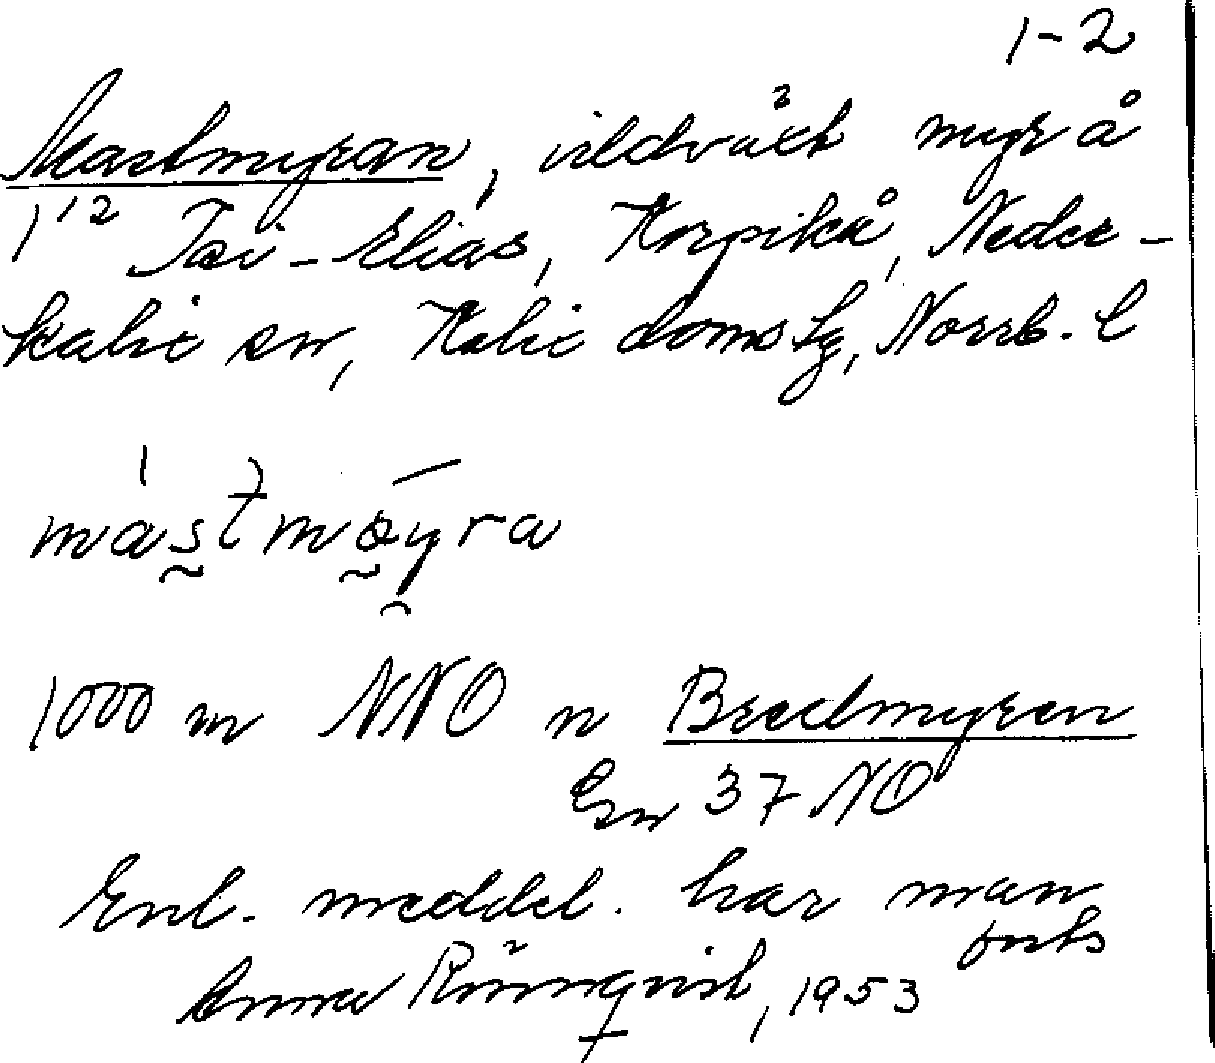 1-2
Mastmyran, sidvält myr å
1/2 Tai-Elias, Korpikå, Neder-
kalix sn, Kalix doms lg, Norrb. l
mastmöyra
1000 m NNO n Bredmyren
Gn 37 NO
Enl. meddel. har man
forts
Anna Rönnqvist, 1953